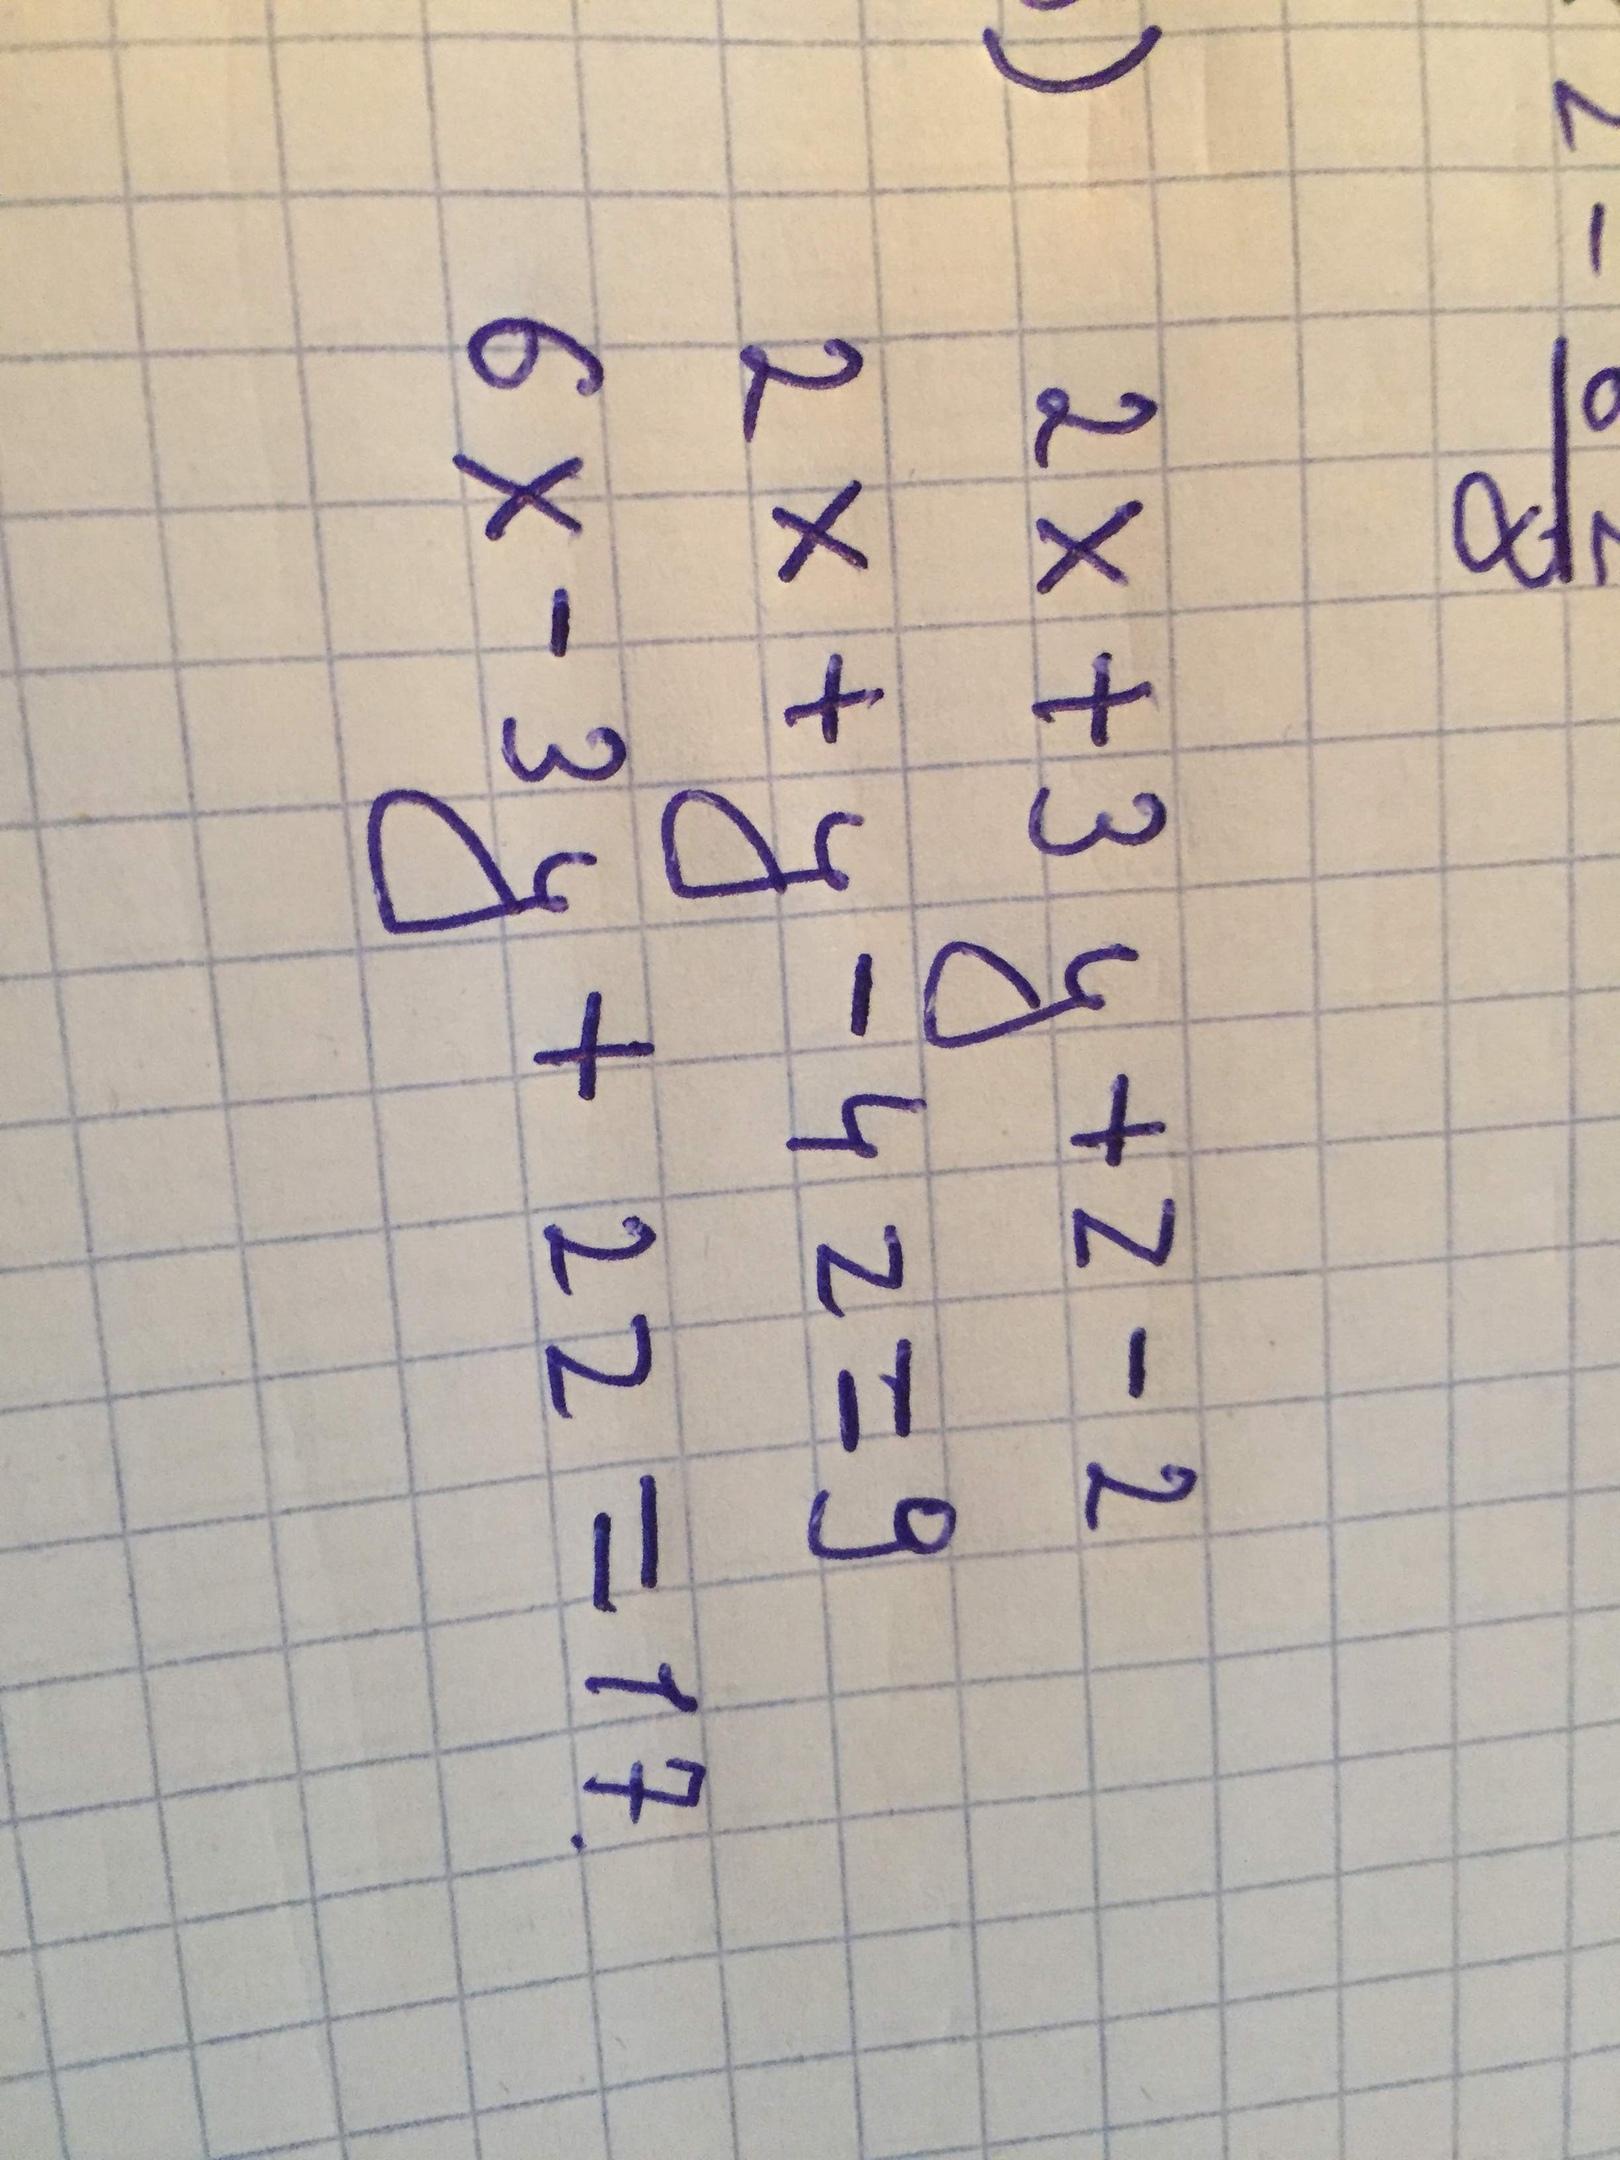 2x+3y+z-2
2x+y-4z=9
6x-3y+2z=17.